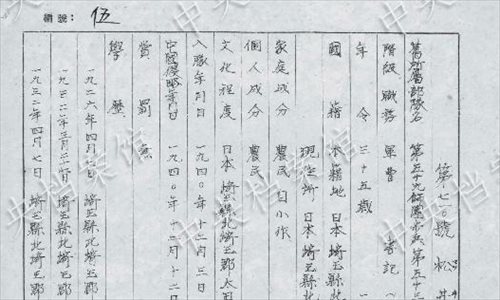 編號：伍
第七〇號 松井
舊所屬部隊名 第五十九師團 第五十三
階級 職務 軍曹 書記
年令 三十五歲
國籍 本籍地 日本埼玉縣北
現住所 日本埼玉縣北
家庭成分 農民 自小作
個人成分 農民
文化程度 日本埼玉縣北埼玉郡太田
入隊年月日 一九四〇年十二月三日
中國侵略年月日 一九四〇年十二月十二日
賞罰 無
學歷
一九二六年四月七日 埼玉縣北埼玉郡
一九三二年三月二十日 埼玉縣北埼玉郡
一九三二年四月七日 埼玉縣北埼玉郡
中央档案馆